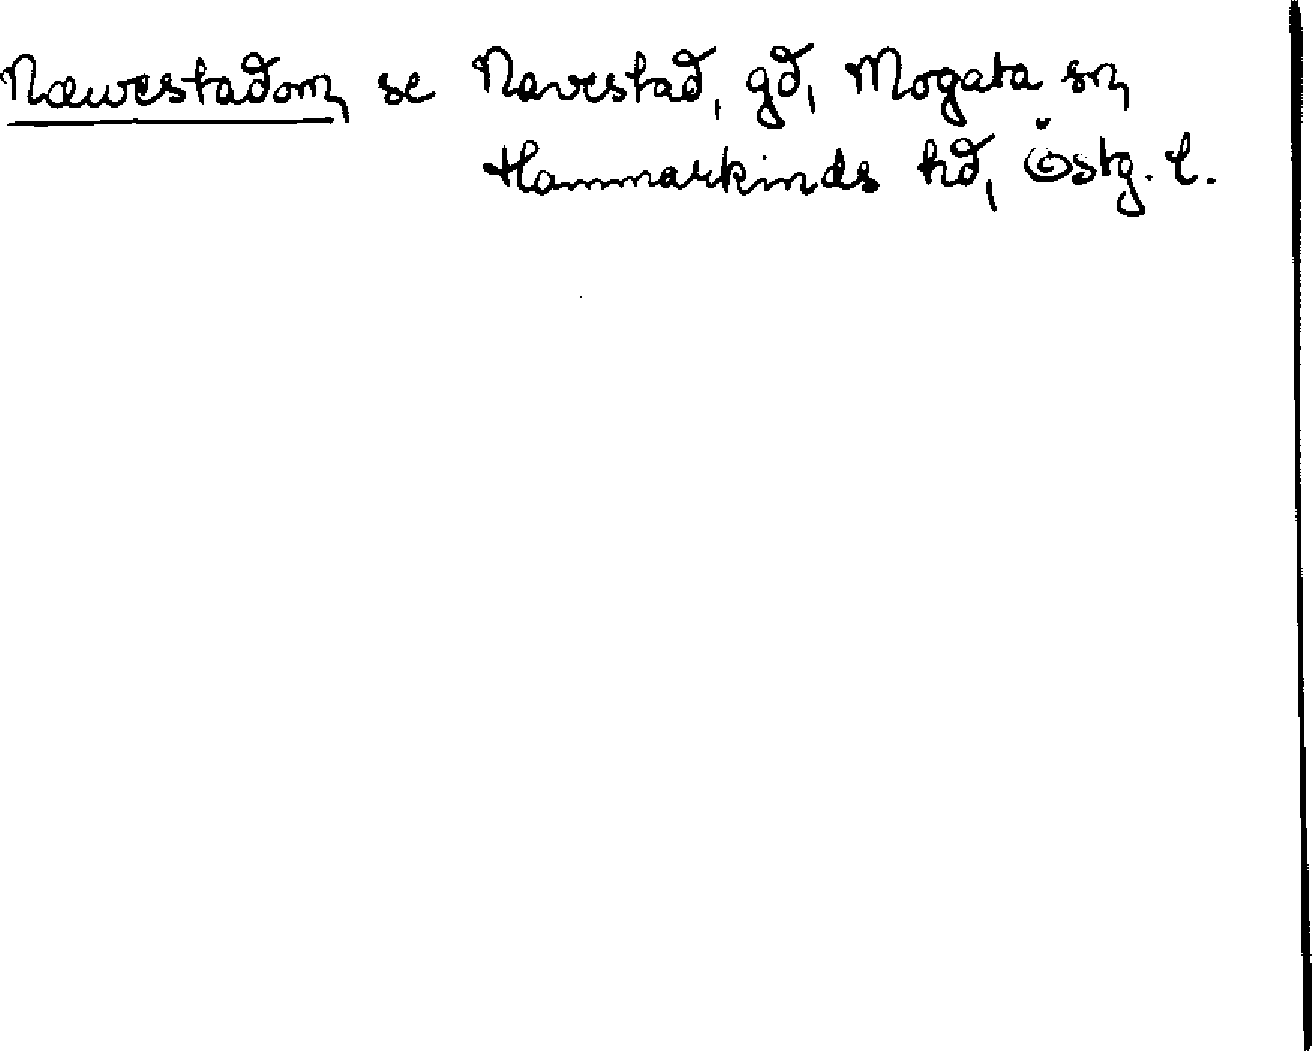 Næwestadom, se Navestad, gd, Mogata sn,
Hammarkinds hd, Östg. l.